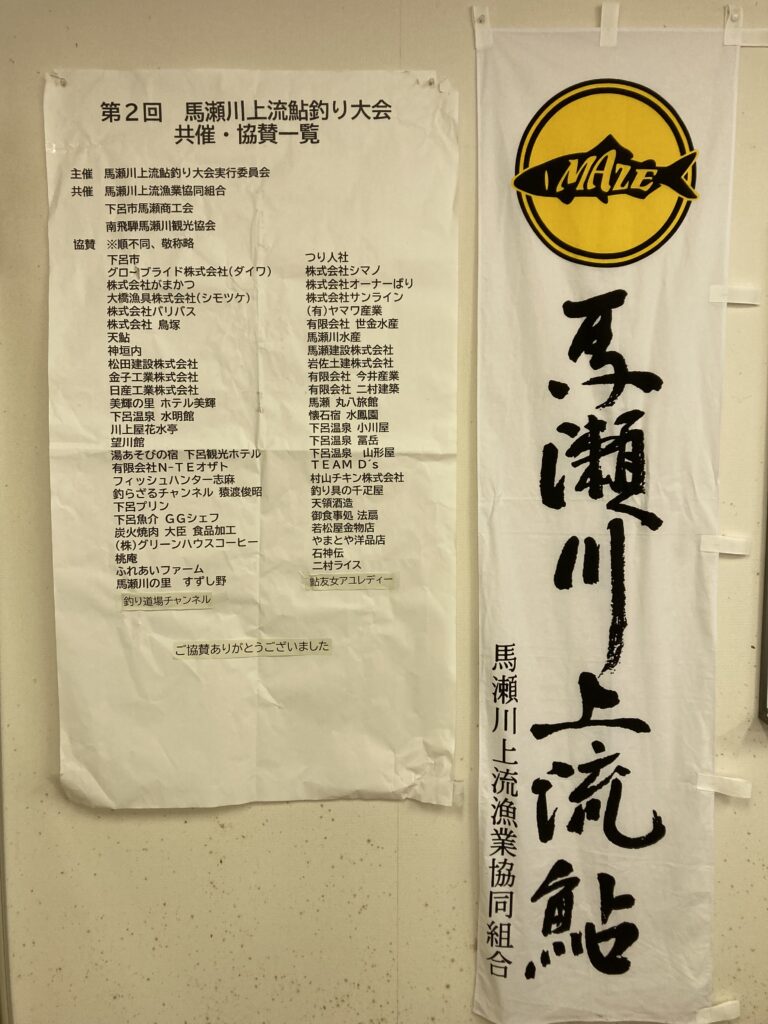 第2回　馬瀬川上流鮎釣り大会
共催・協賛一覧
主催　馬瀬川上流鮎釣り大会実行委員会
共催　馬瀬川上流漁業協同組合
下呂市馬瀬商工会
南飛騨馬瀬川観光協会
協賛　※順不同、敬称略
下呂市
グローブライド株式会社(ダイワ)
株式会社がまかつ
大橋漁具株式会社(シモツケ)
株式会社バリバス
株式会社 鳥塚
天鮎
神垣内
松田建設株式会社
金子工業株式会社
日産工業株式会社
美輝の里 ホテル美輝
下呂温泉 水明館
川上屋花水亭
望川館
湯あそびの宿 下呂観光ホテル
有限会社N-TEオザト
フィッシュハンター志麻
釣らざるチャンネル 猿渡俊昭
下呂プリン
下呂魚介 GGシェフ
炭火焼肉 大臣 食品加工
(株)グリーンハウスコーヒー
桃庵
ふれあいファーム
馬瀬川の里　すずし野
釣り道場チャンネル
つり人社
株式会社シマノ
株式会社オーナーばり
株式会社サンライン
(有)ヤマワ産業
有限会社 世金水産
馬瀬川水産
馬瀬建設株式会社
岩佐土建株式会社
有限会社 今井産業
有限会社 二村建築
馬瀬 丸八旅館
懐石宿 水鳳園
下呂温泉 小川屋
下呂温泉 冨岳
下呂温泉　山形屋
TEAM D's
村山チキン株式会社
釣り具の千疋屋
天領酒造
御食事処 法扇
若松屋金物店
やまとや洋品店
石神伝
二村ライス
鮎友女アユレディー
ご協賛ありがとうございました
MAZE
馬瀬川上流鮎
馬瀬川上流漁業協同組合